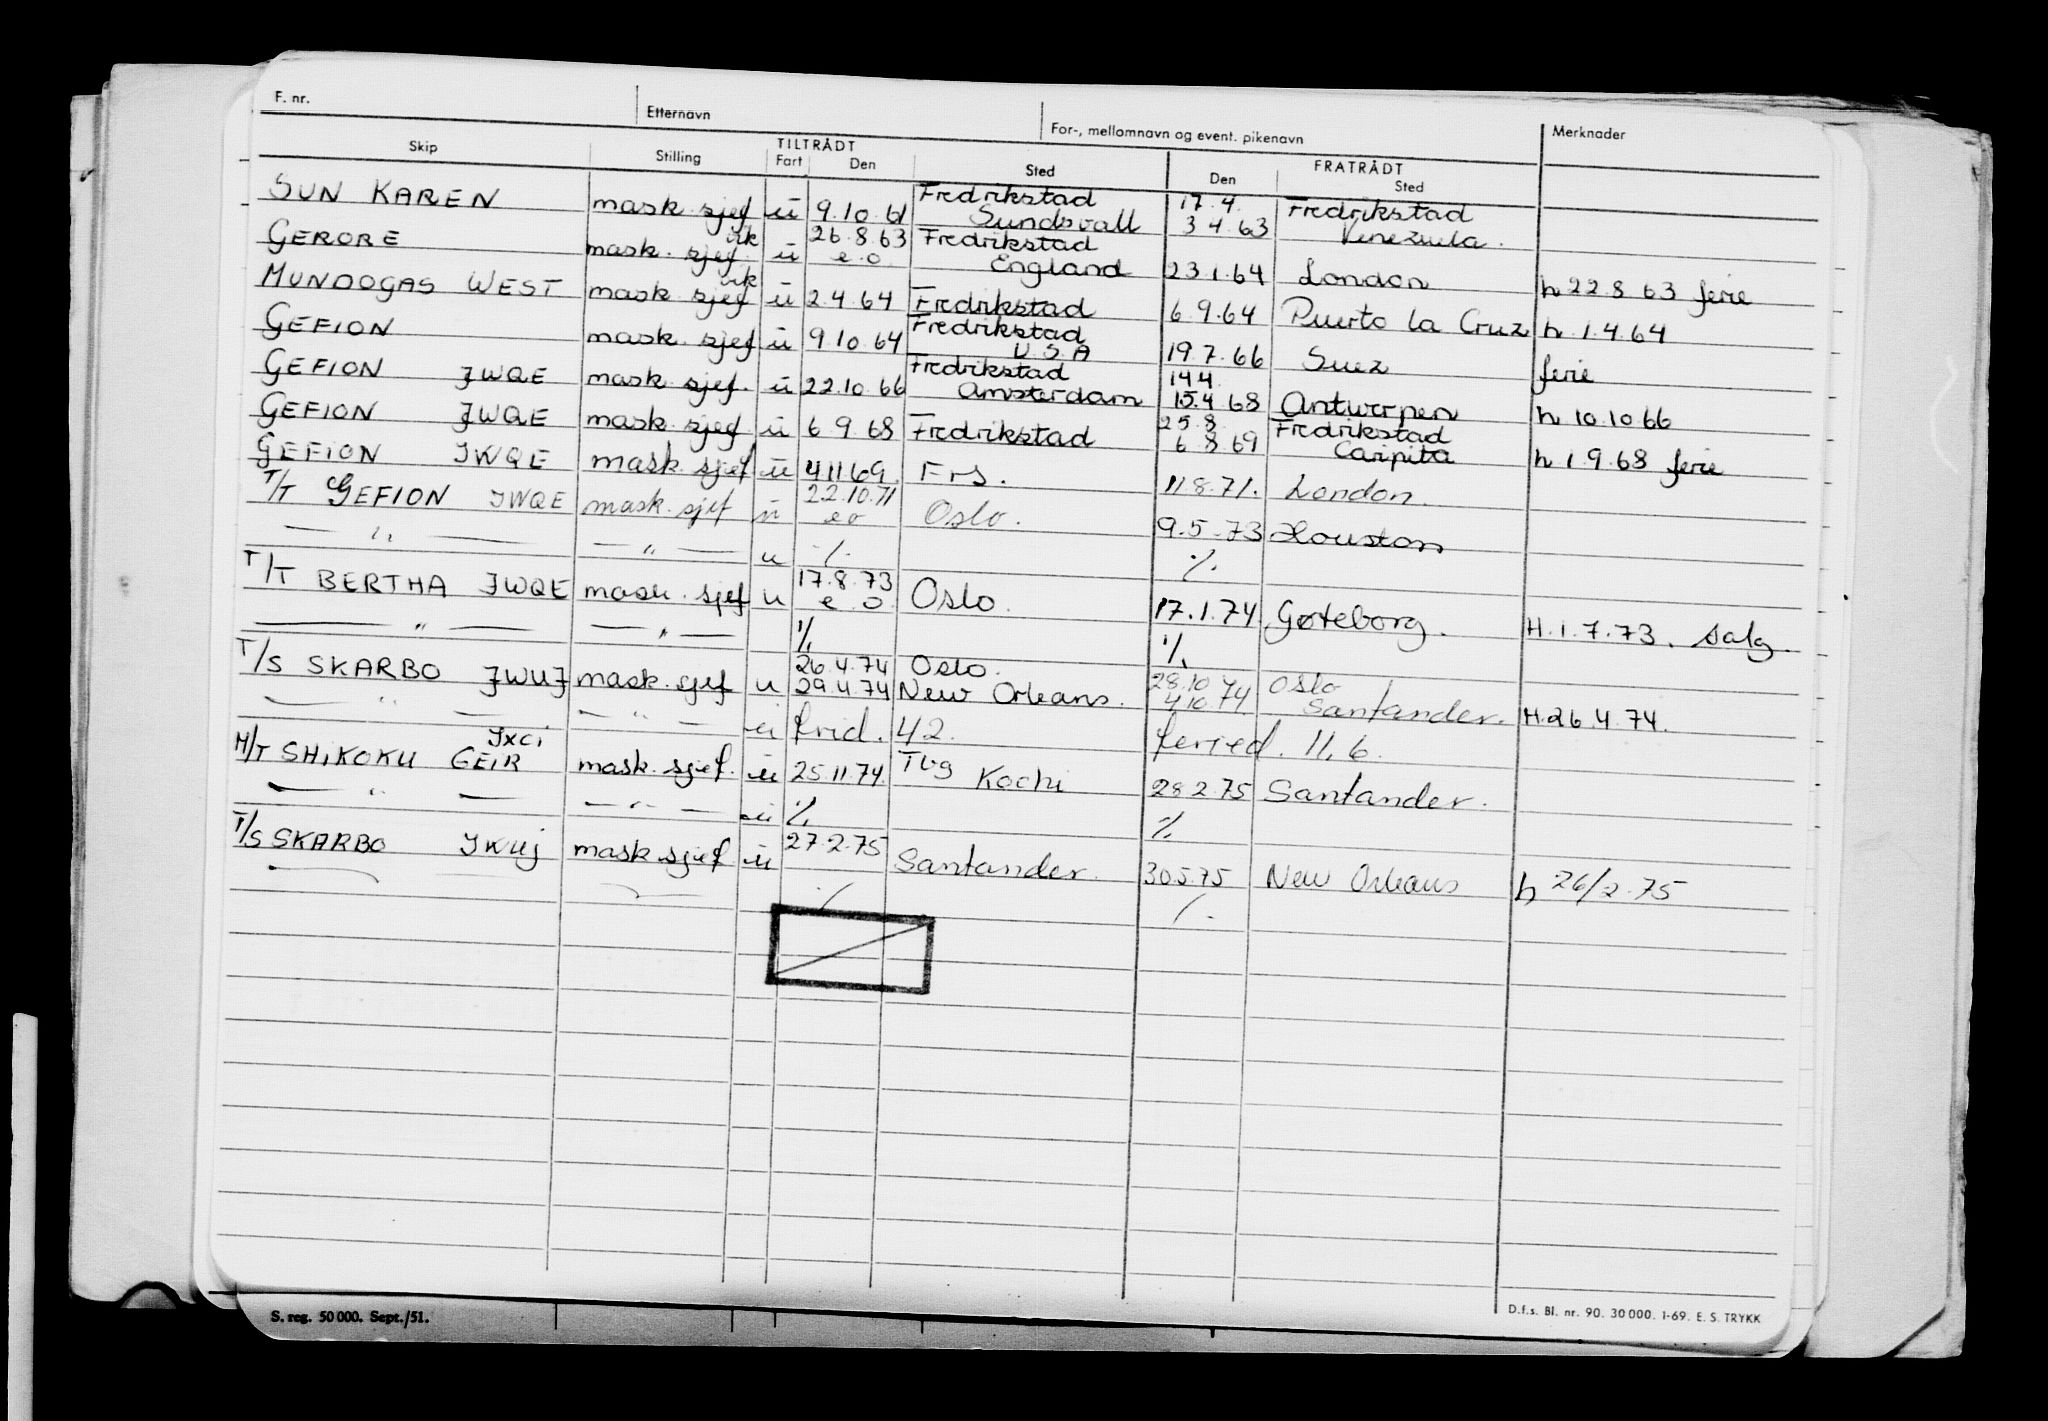 F. nr. Etternavn For-, mellomnavn og event. pikenavn Merknader
Skip Stilling TILTRÅDT Fart Den Sted FRATRÅDT Den Sted
SUN KAREN mask. sjef ü 9.10.61 Fredrikstad Sundsvall 17.4. 3.4.63 Fredrikstad Venezuela.
GERORE mask. sjef. vik ü 26.8.63 e.o. Fredrikstad England 23.1.64 London h 22.8.63 ferie
MUNDOGAS WEST mask sjef vik ü 2.4.64 Fredrikstad 6.9.64 Puerto la Cruz h.1.4.64
GEFION mask. sjef ü 9.10.64 Fredrikstad U.S.A 19.7.66 Suez ferie
GEFION JWQE mask. sjef. ü 22.10.66 Fredrikstad Amsterdam 14.4. 15.4.68 Antwerpen h 10.10.66
GEFION JWQE mask. sjef. ü 6.9.68 Fredrikstad 25.8. 6.8.69 Fredrikstad Caripita h 1.9.68 ferie
GEFION JWQE mask. sjef ü 4.11.69. Frs. 11.8.71. London.
T/T GEFION JWQE mask. sjef ü 22.10.71 eo Oslo. 9.5.73 Houston
— " — — " — u ./. ./.
T/T BERTHA JWQE mask. sjef u 17.8.73 e.o. Oslo. 17.1.74. Gøteborg. H.1.7.73. salg.
— " — — " — ./. ./.
T/S SKARBO JWUJ mask. sjef u 26.4.74 29.4.74 Oslo. New Orleans. 28.10.74 4.10.74 Oslo Santander. H.26.4.74.
— " — — " — ü frid. 42. feried. 11.6.
M/T SHIKOKU GEIR JXCI mask. sjef. ü 25.11.74. Tbg Kochi 28.2.75 Santander.
— " — — " — ü ./. ./.
T/S SKARBO JWUJ mask sjef ü 27.2.75 Santander. 30.5.75 New Orleans h 26/2.75
./. ./.
S. reg. 50 000. Sept./51. D.f.s. Bl. nr. 90. 30 000. 1-69. E. S. TRYKK